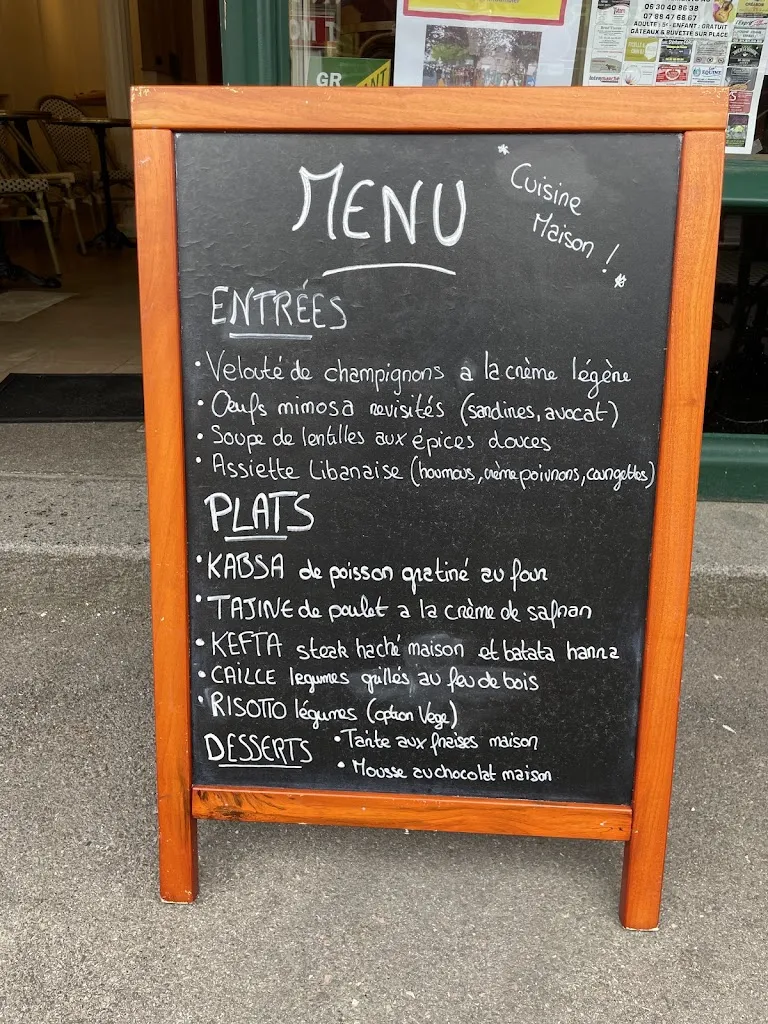 06 30 40 86 38
07 88 47 68 67
ADULTE : 5€ - ENFANT : GRATUIT
GÂTEAUX & BUVETTE SUR PLACE
GR
MENU
Cuisine
Maison !
ENTRÉES
• Velouté de champignons a la crème légère
• Oeufs mimosa revisités (sardines, avocat)
• Soupe de lentilles aux épices douces
• Assiette Libanaise (houmous, crème poivrons, courgettes)
PLATS
• KABSA de poisson gratiné au four
• TAJINE de poulet a la crème de safran
• KEFTA steak haché maison et batata harra
• CAILLE legumes grillés au feu de bois
• RISOTTO légumes (option Vege)
DESSERTS
• Tarte aux fraises maison
• Mousse au chocolat maison